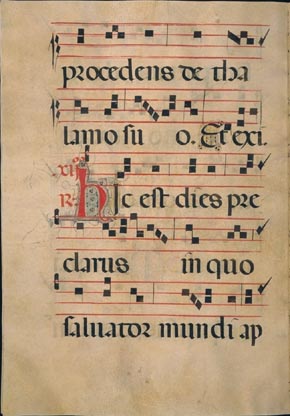 procedens de tha
lamo su o. Et exi.
R. Hic est dies pre
clarus in quo
saluator mundi ap